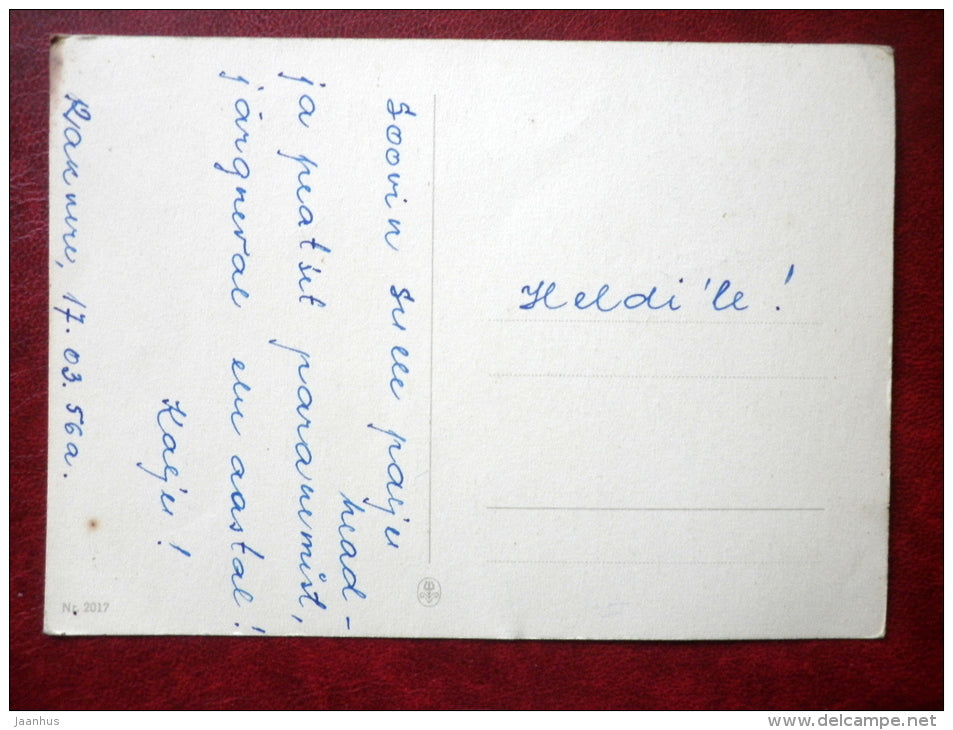 Heldi'le!
Soovin sulle palju
head -
ja peatset paranemist,
järgneval elu aastal!
Kalju!
Rakvere, 17.03.56a.
Nr. 2017
jaanhus
www.delcampe.net